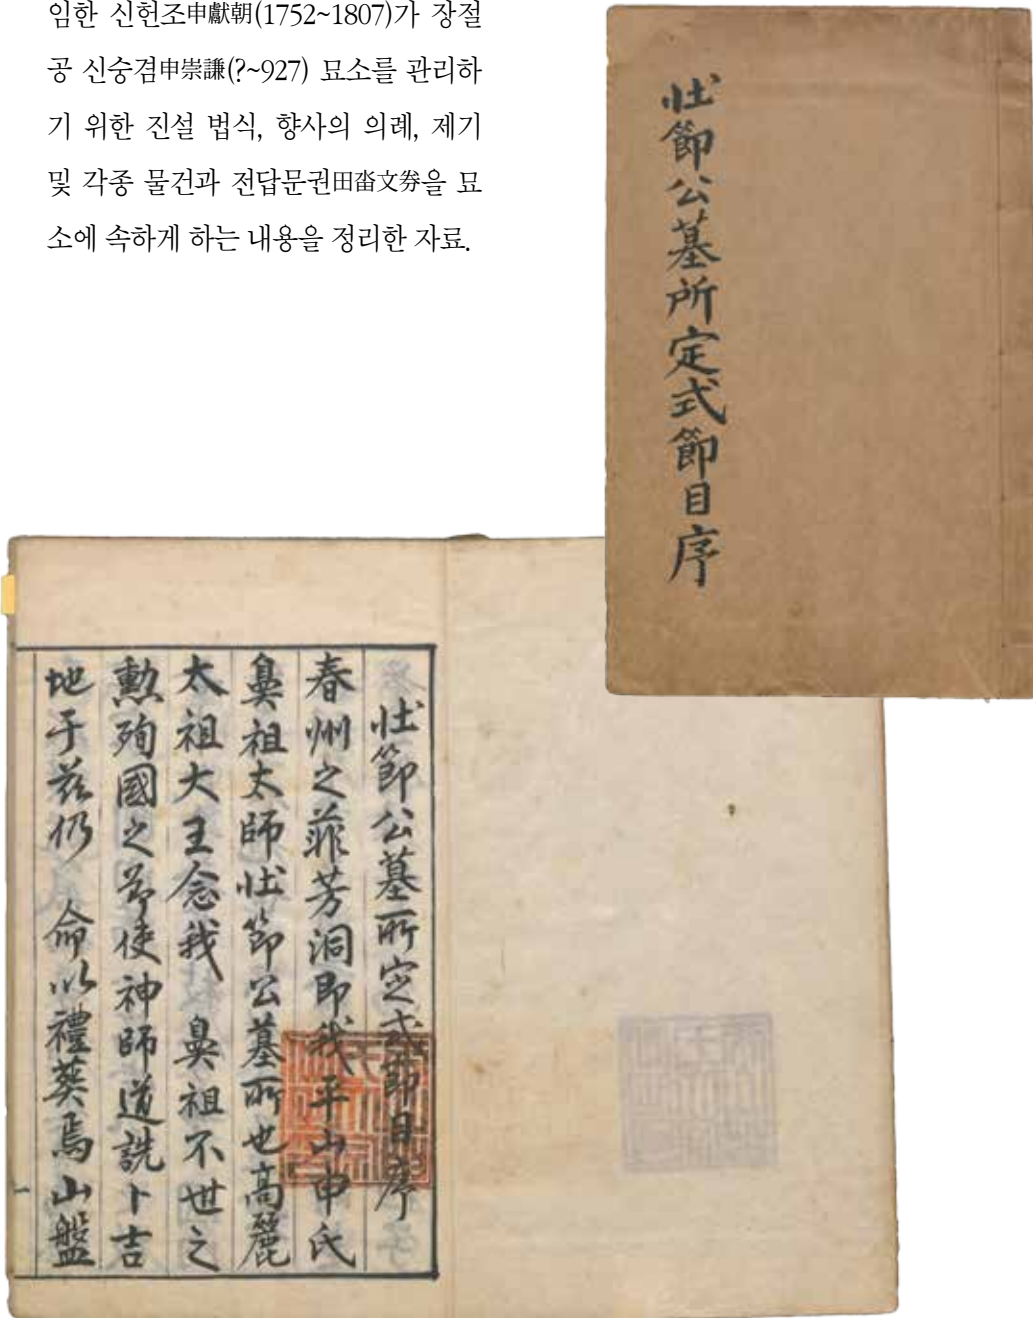 임한 신헌조申獻朝(1752~1807)가 장절
공 신숭겸申崇謙(?~927) 묘소를 관리하
기 위한 진설 법식, 향사의 의례, 제기
및 각종 물건과 전답문권田畓文券을 묘
소에 속하게 하는 내용을 정리한 자료.
壯節公墓所定式節目序
壯節公墓所定式節目序
春州之菲芳洞即我平山申氏
鼻祖太師壯節公墓所也高麗
太祖大王念我 鼻祖不世之
勳殉國之節使神師道詵卜吉
地于玆仍 命以禮葬焉山盤